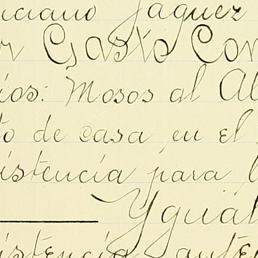 nciano Jaquez
or Gasto Con
ios: Mosos al Al
to de casa en el
istencia para l
Ygual
istencia anter